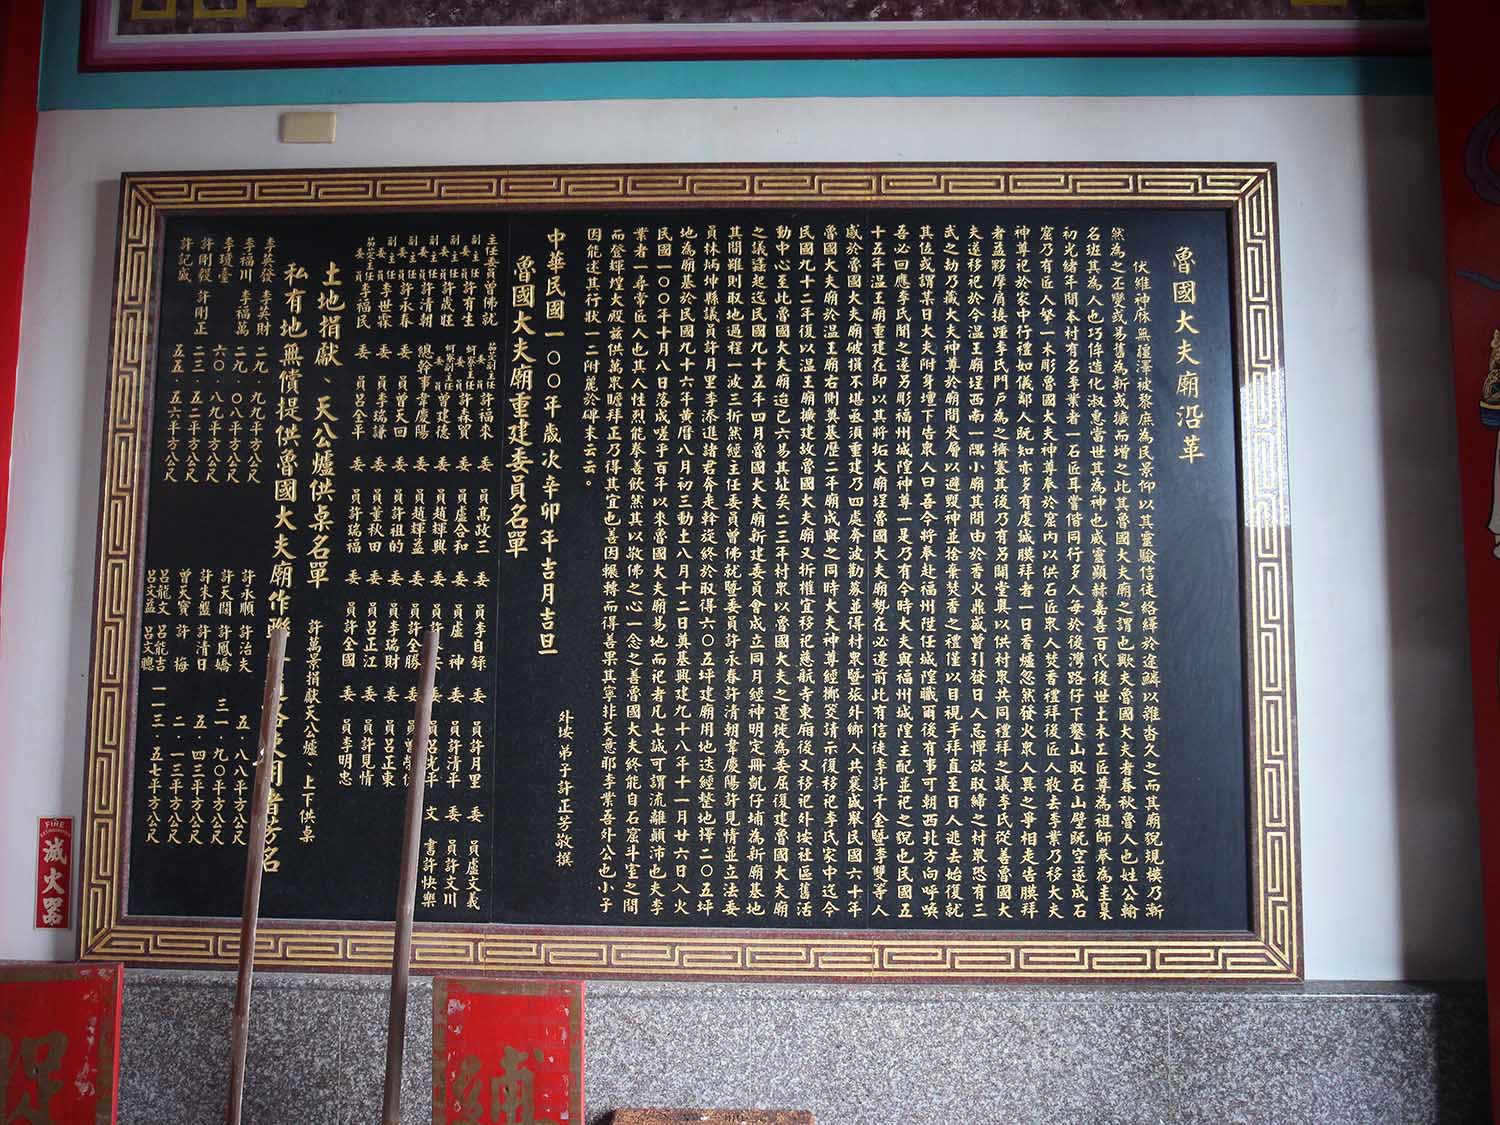 魯國大夫廟沿革
伏維神庥無疆澤被黎庶為民景仰以其靈驗信徒絡繹於途鱗以雜沓久之而其廟貌規模乃漸
然為之丕變或易舊為新或擴而增之此其魯國大夫廟之謂也歟夫魯國大夫者春秋魯人也姓公輸
名班其為人也巧侔造化淑惠當世其為神也威靈顯赫嘉善百代後世土木工匠尊為祖師奉為圭臬
初光緒年間本村有名李業者一石匠耳嘗偕同行多人每於後灣路仔下鑿山取石山壁既空遂成石
窟乃有匠人拏一木彫魯國大夫神尊奉於窟內以供石匠眾人焚香禮拜後匠人散去李業乃移大夫
神尊祀於家中行禮如儀鄰人既知亦多有虔誠膜拜者一日香爐忽然發火眾人異之爭相走告膜拜
者益夥摩肩接踵李氏門戶為之擠塞其後乃有另闢堂奧以供村眾共同禮拜之議李氏從善魯國大
夫遂移祀於今溫王廟埕西南一隅小廟其間由於香火鼎盛曾引發日人忌憚欲取締之村眾恐有三
武之劫乃藏大夫神尊於廟間夾層以避毀神並捨棄焚香之禮僅以目視手拜直至日人逃去始復就
其位或謂某日大夫附身壇下告眾人曰吾今將奉赴福州陞任城隍職爾後有事可朝西北方向呼喚
吾必回應李氏聞之遂另彫福州城隍神尊一是乃有今時大夫與福州城隍主配並祀之貌也民國五
十五年溫王廟重建在即以其將拓大廟埕魯國大夫廟勢在必遷前此有信徒李許千金暨李雙等人
感於魯國大夫廟破損不堪亟須重建乃四處奔波勸募並得村眾暨旅外鄉人共襄盛舉民國六十年
魯國大夫廟於溫王廟右側奠基歷二年廟成與之同時大夫神尊經擲筊請示復移祀李氏家中迄今
民國九十二年復以溫王廟擴建故魯國大夫廟又折權宜移祀慈航寺東廂後又移祀外垵社區舊活
動中心至此魯國大夫廟迨已六易其址矣二三年村眾以魯國大夫之遷徙為委屈復建魯國大夫廟
之議囂起迄民國九十五年四月魯國大夫廟新建委員會成立同月經神明定冊凱仔埔為新廟基地
其間雖則取地過程一波三折然經主任委員曾佛就暨委員許永春許清朝韋慶陽許見情並立法委
員林炳坤縣議員許月里李添進諸君奔走斡旋終於取得六０五坪建廟用地迭經整地擇二０五坪
地為廟基於民國九十六年黃曆八月初三動土八月十二日奠基興建九十八年十一月廿六日入火
民國一００年十月八日落成嗟乎百年以來魯國大夫廟易地而祀者凡七誠可謂流離顛沛也夫李
業者一尋常匠人也其人性烈能拳善飲然其以敬佛之心一念之善魯國大夫終能自石窟斗室之間
而登輝煌大殿茲供萬眾瞻拜正乃得其宜也善因輾轉而得善果其寧非天意耶李業吾外公也小子
因能述其行狀一二附麗於碑末云云。
外垵弟子許正芳敬撰
中華民國一００年歲次辛卯年吉月吉旦
魯國大夫廟重建委員名單
主任委員曾佛就 總務副主任委員許福來 委員高政三 委員李自錄 委員許月里 委員盧文義
副主任委員許有生 委員許森質 委員盧合和 委員盧神 委員許清平 委員許文川
副主任委員許歲旺 委員曾建德 委員趙輝興 委員呂光平 文書許快樂
副主任委員許清朝 總幹事韋慶陽 委員趙輝益 委員許全勝
副主任委員許永春 委員曾天回 委員許祖的 委員李瑞財 委員呂正東
副主任委員李世霖 委員李瑞謙 委員董秋田 委員呂正江 委員許見情
總務主任委員李福民 委員呂全平 委員許瑞福 委員許全國 委員李明忠
土地捐獻、天公爐供桌名單 許萬景捐獻天公爐、上下供桌
私有地無償提供魯國大夫廟作
李英發 李英財 二九．九九平方公尺 許永順 許治夫 五．八八平方公尺
李福川 李福萬 二九．０八平方公尺 許天開 許鳳嬌 三一．九０平方公尺
李瓊臺 六０．八九平方公尺 許朱盤 許清日 五．四三平方公尺
許剛毅 許剛正 二三．五二平方公尺 曾天寶 許梅 二．一三平方公尺
許記盛 五五．五六平方公尺 呂龍文 呂能吉 呂文益 呂文聰 一一三．五七平方公尺
FIRE
滅火器